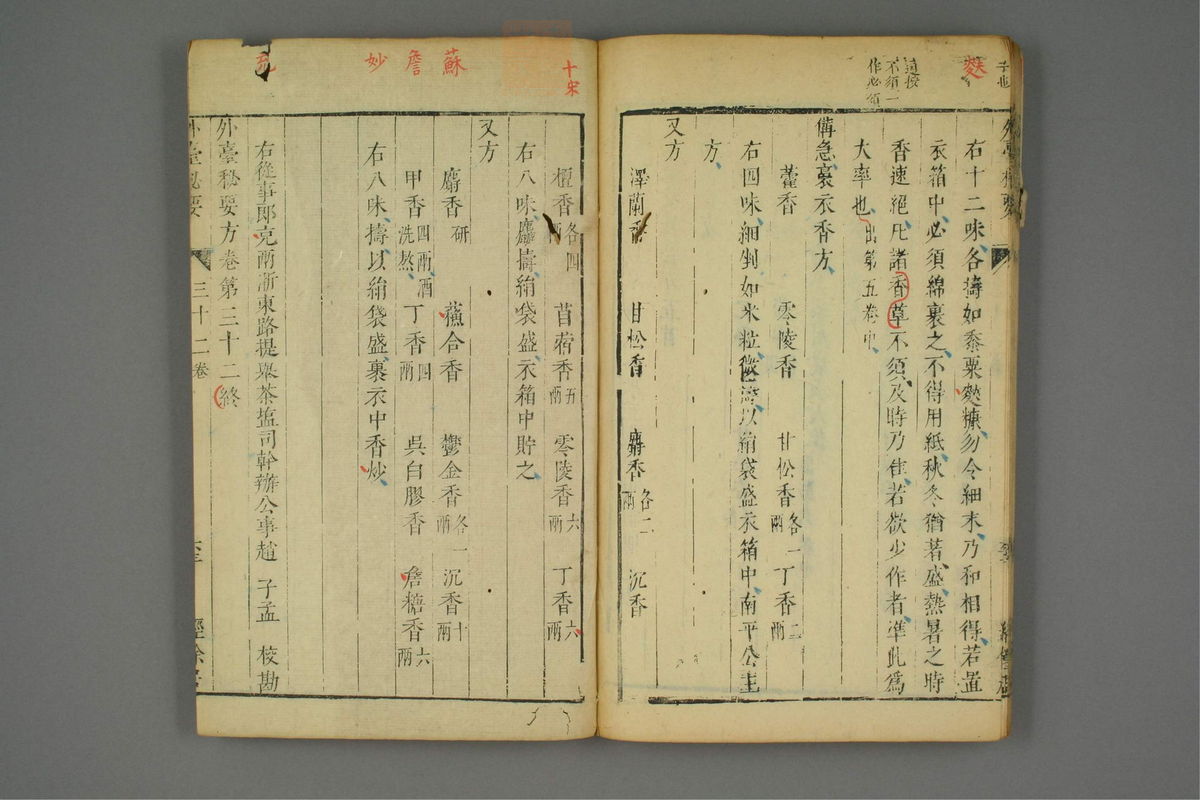 右十二味各擣如黍粟麩糠勿令細末乃和相得若置
衣箱中必須綿裹之不得用紙秋冬猶著盛熱暑之時
香速絕凡諸香草不須及時乃佳若欲少作者準此為
大率也出第五卷中
備急裛衣香方
藿香 零陵香 甘松香各一兩 丁香二兩
右四味細剉如米粒微擣以絹袋盛衣箱中南平公主
方
又方
澤蘭香 甘松香 麝香各二兩 沉香
檀香各四兩 苜蓿香五兩 零陵香六兩 丁香六兩
右八味麤擣絹袋盛衣箱中貯之
又方
麝香研 蘓合香 鬱金香各一兩 沉香十兩
甲香四兩酒洗熬 丁香四兩 吳白膠香 詹糖香六兩
右八味擣以絹袋盛裹衣中香炒
右從事郎充兩浙東路提舉茶塩司幹辦公事趙 子孟 校勘
外臺秘要方卷第三十二終
外臺秘要 三十二卷
子也
麩
這按
不須一
作必須
十宋
蘇
詹
妙
充